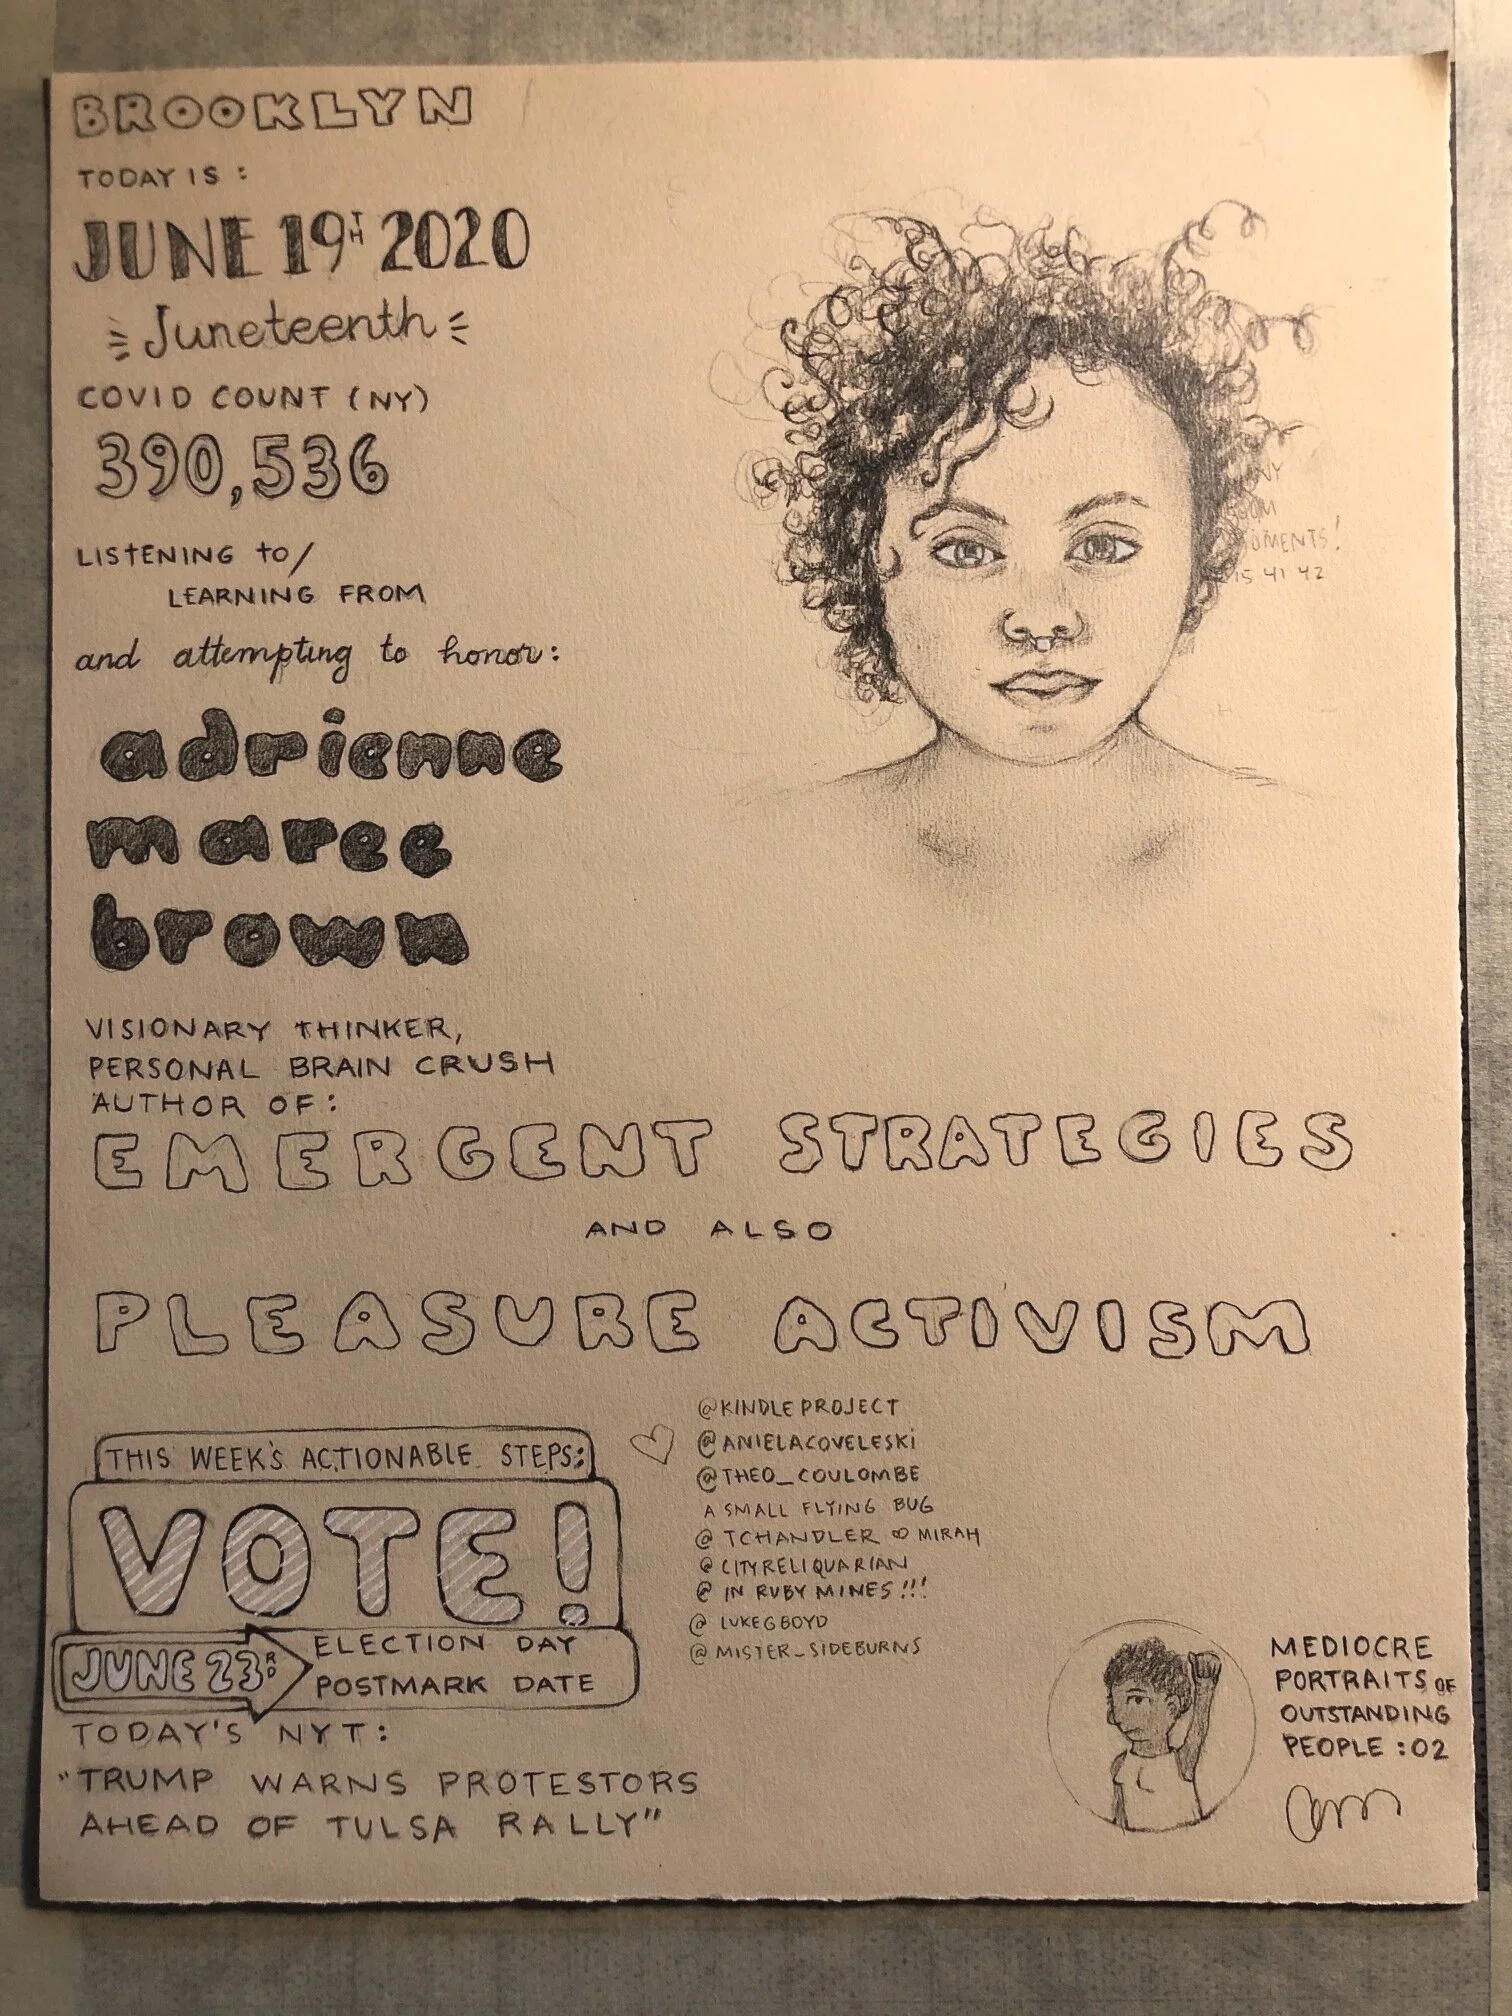 BROOKLYN
TODAY IS :
JUNE 19TH 2020
Juneteenth
COVID COUNT (NY)
390,536
LISTENING TO/
LEARNING FROM
and attempting to honor:
adrienne
maree
brown
VISIONARY THINKER,
PERSONAL BRAIN CRUSH
AUTHOR OF:
EMERGENT STRATEGIES
AND ALSO
PLEASURE ACTIVISM
THIS WEEK'S ACTIONABLE STEPS:
VOTE!
JUNE 23RD
ELECTION DAY
POSTMARK DATE
TODAY'S NYT:
"TRUMP WARNS PROTESTORS
AHEAD OF TULSA RALLY"
@KINDLEPROJECT
@ANIELACOVELESKI
@THEO_COULOMBE
A SMALL FLYING BUG
@TCHANDLER ♡ MIRAH
@CITYRELIQUARIAN
@ IN RUBY MINES!!!
@ LUKEGBOYD
@MISTER_SIDEBURNS
MEDIOCRE
PORTRAITS OF
OUTSTANDING
PEOPLE :02
15 41 42